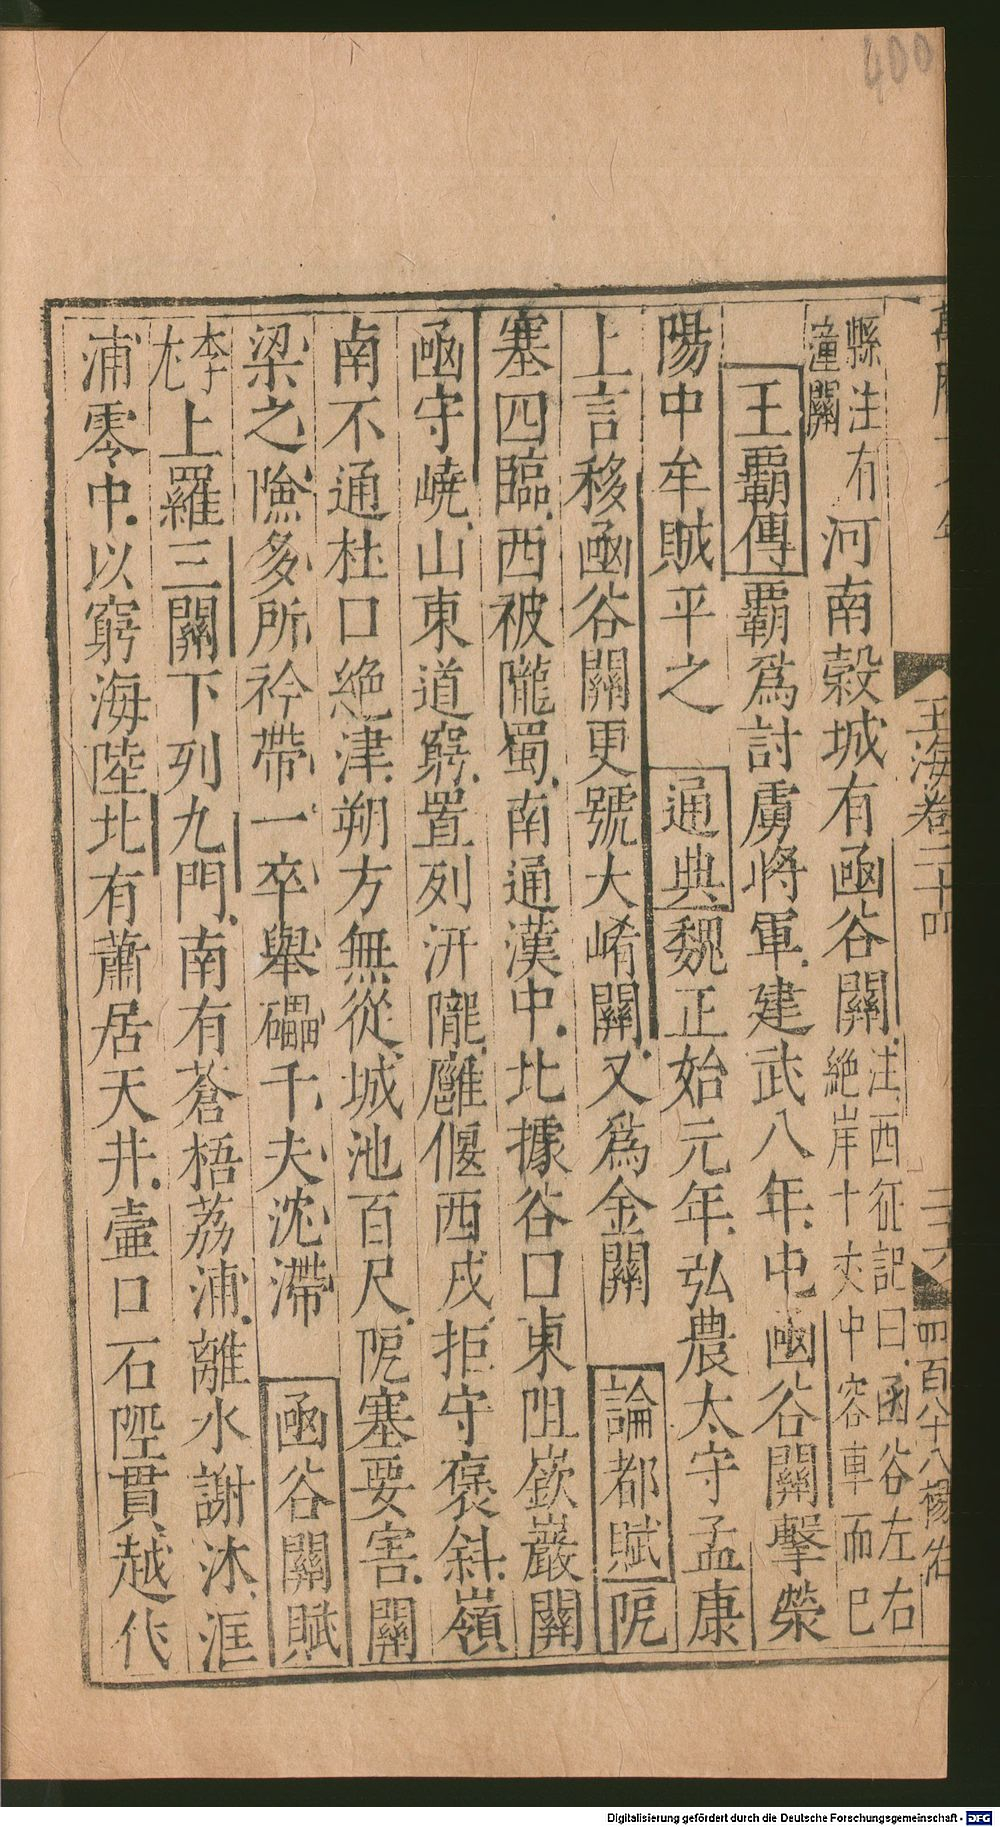 400
玉海卷二十四
二六
四百八十八楊
縣注有
潼關
河南穀城有函谷關
注西征記曰函谷左右
絶岸十丈中容車而已
王霸傳霸爲討虜將軍建武八年屯函谷關擊滎
陽中牟賊平之 通典魏正始元年弘農太守孟康
上言移函谷關更號大崤關又爲金關 論都賦阨
塞四臨西被隴蜀南通漢中北據谷口東阻嶔巖關
函守嶢山東道窮置列汧隴廱偃西戎拒守褒斜嶺
南不通杜口絶津朔方無從城池百尺阨塞要害關
梁之險多所衿帶一卒舉礧千夫沈滯 函谷關賦
李尤
上羅三關下列九門南有蒼梧荔浦離水謝沐洭
浦零中以窮海陸北有蕭居天井壺口石陘貫越代
Digitalisierung gefördert durch die Deutsche Forschungsgemeinschaft - DFG